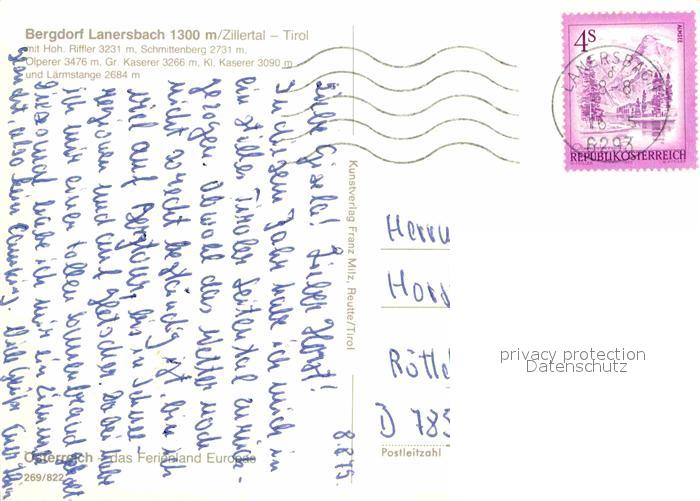 Bergdorf Lanersbach 1300 m/Zillertal – Tirol
mit Hoh. Riffler 3231 m, Schmittenberg 2731 m,
Olperer 3476 m, Gr. Kaserer 3266 m, Kl. Kaserer 3090 m
und Lärmstange 2684 m
8.8.75.
Liebe Gisela! Lieber Horst!
In diesem Jahr habe ich mich in
ein stilles Tiroler Seitental zurück-
gezogen. Obwohl das Wetter noch
nicht so recht beständig ist, bin ich
viel auf Bergtour bis in Schnee-
regionen und auf Gletscher. Dabei habe
ich mir einen tollen Sonnenbrand geholt.
Diesmal habe ich mir ein Zimmer
also kein Camping. Viele Grüße
Österreich – das Ferienland Europas
269/822
Kunstverlag Franz Milz, Reutte/Tirol
4S
ALMSEE
REPUBLIK ÖSTERREICH
LANERSBACH
6293
Herrn
Hors
Röttl
D 785
Postleitzahl
privacy protection
Datenschutz